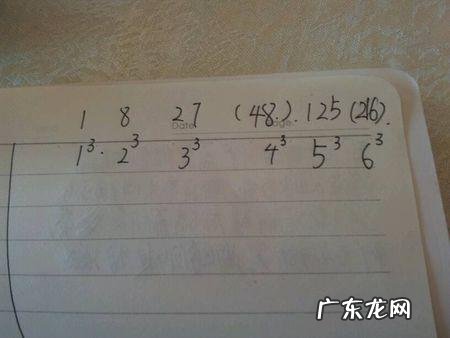 1 8 27 (48.). 125 (216).
Date Page
1³. 2³ 3³ 4³ 5³ 6³
广东龙网